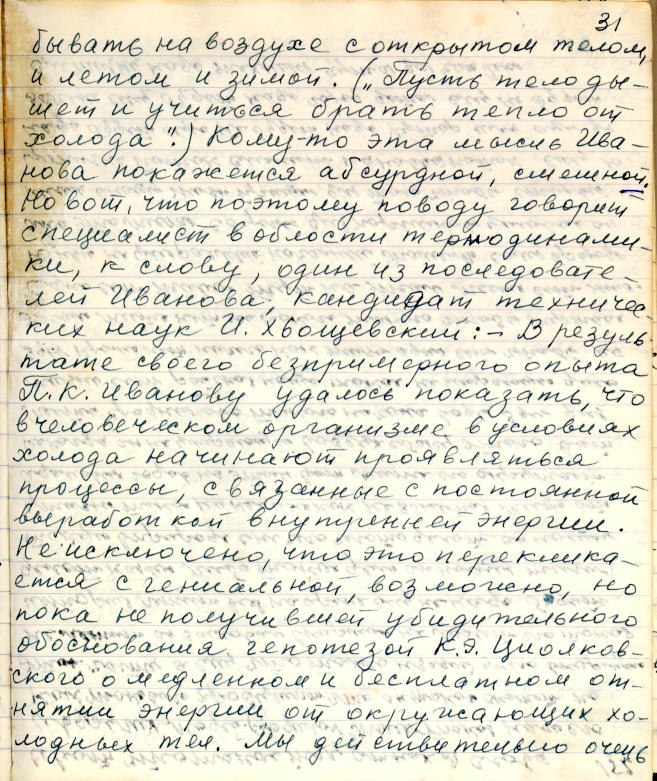 31
бывать на воздухе с открытом телом,
и летом и зимой. („Пусть тело ды-
шет и учиться брать тепло от
холода".) Кому-то эта мысль Ива-
нова покажется абсурдной, смешной.
Но вот, что поэтому поводу говорит
специалист в облости термодинами-
ки, к слову, один из последовате-
лей Иванова, кандидат техничес-
ких наук И. Хвощевский: – В резуль-
тате своего безпримерного опыта
П.К. Иванову удалось показать, что
в человеческом организме в условиях
холода начинают проявляться
процессы, связанные с постоянной
выработкой внутренней энергии.
Не исключено, что это переклика-
ется с гениальной, возможно, но
пока не получившей убидительного
обоснования гепотезой К.Э. Циолков-
ского о медленном и бесплатном от-
нятии энергии от окружающих хо-
лодных тел. Мы действительно очень